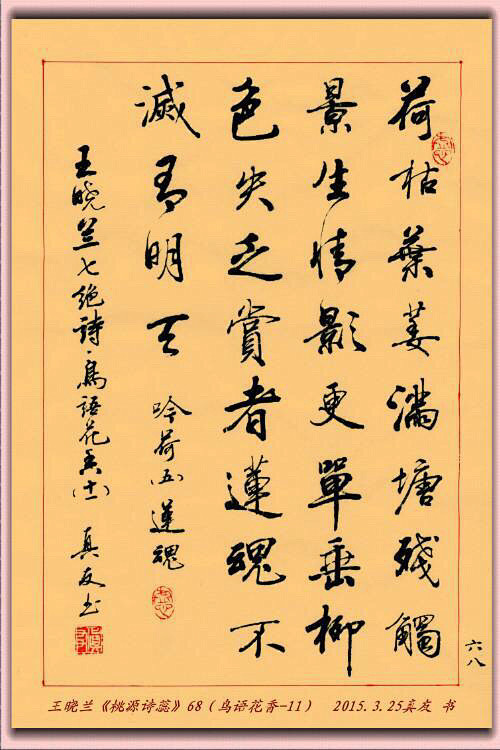 荷枯葉萎滿塘殘觸
景生情影更單垂柳
色失乏賞者蓮魂不
滅有明天
吟荷(五)蓮魂
王晓兰七绝詩·鳥語花香(十一)
真友书
六八
王晓兰《桃源诗蕊》68(鸟语花香-11) 2015.3.25真友 书